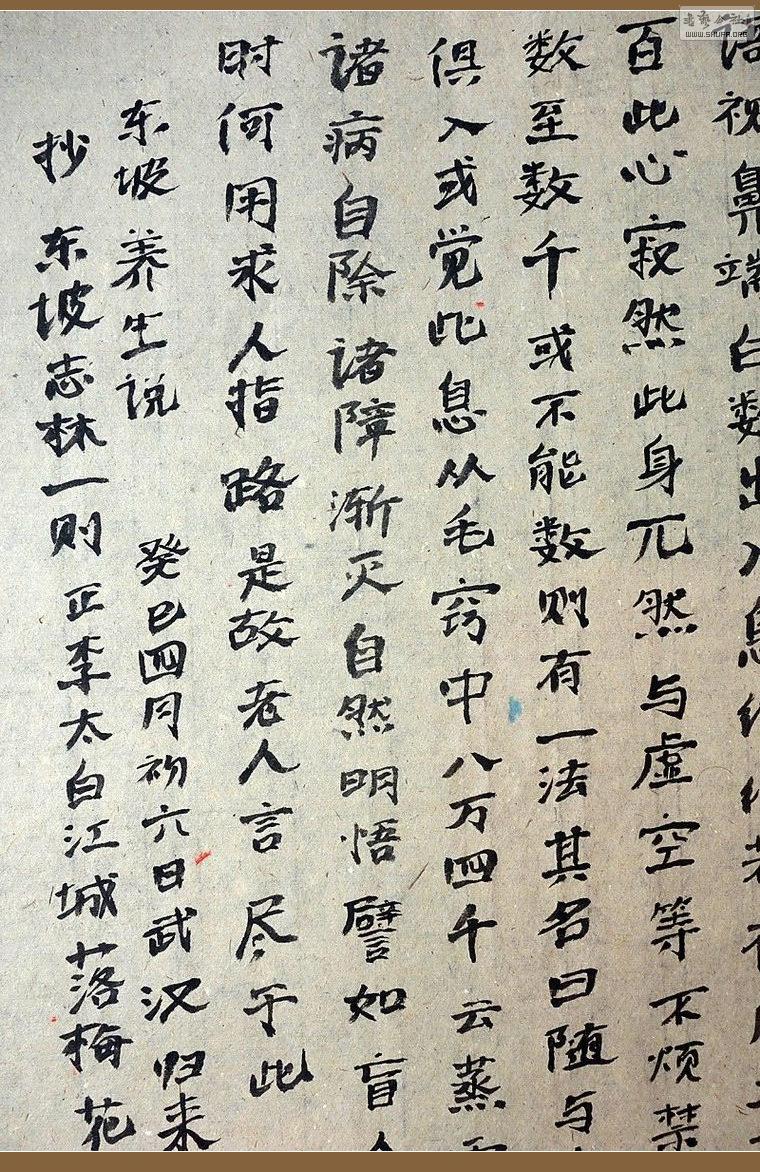 视鼻端白数出入息绵绵若存用之
百此心寂然此身兀然与虚空等不烦禁
数至数千或不能数则有一法其名曰随与
俱入或觉此息从毛窍中八万四千云蒸
诸病自除诸障渐灭自然明悟譬如盲人
时何用求人指路是故老人言尽于此
东坡养生说 癸巳四月初六日武汉归来
抄东坡志林一则 正李太白江城落梅花
WWW.SHUFA.ORG